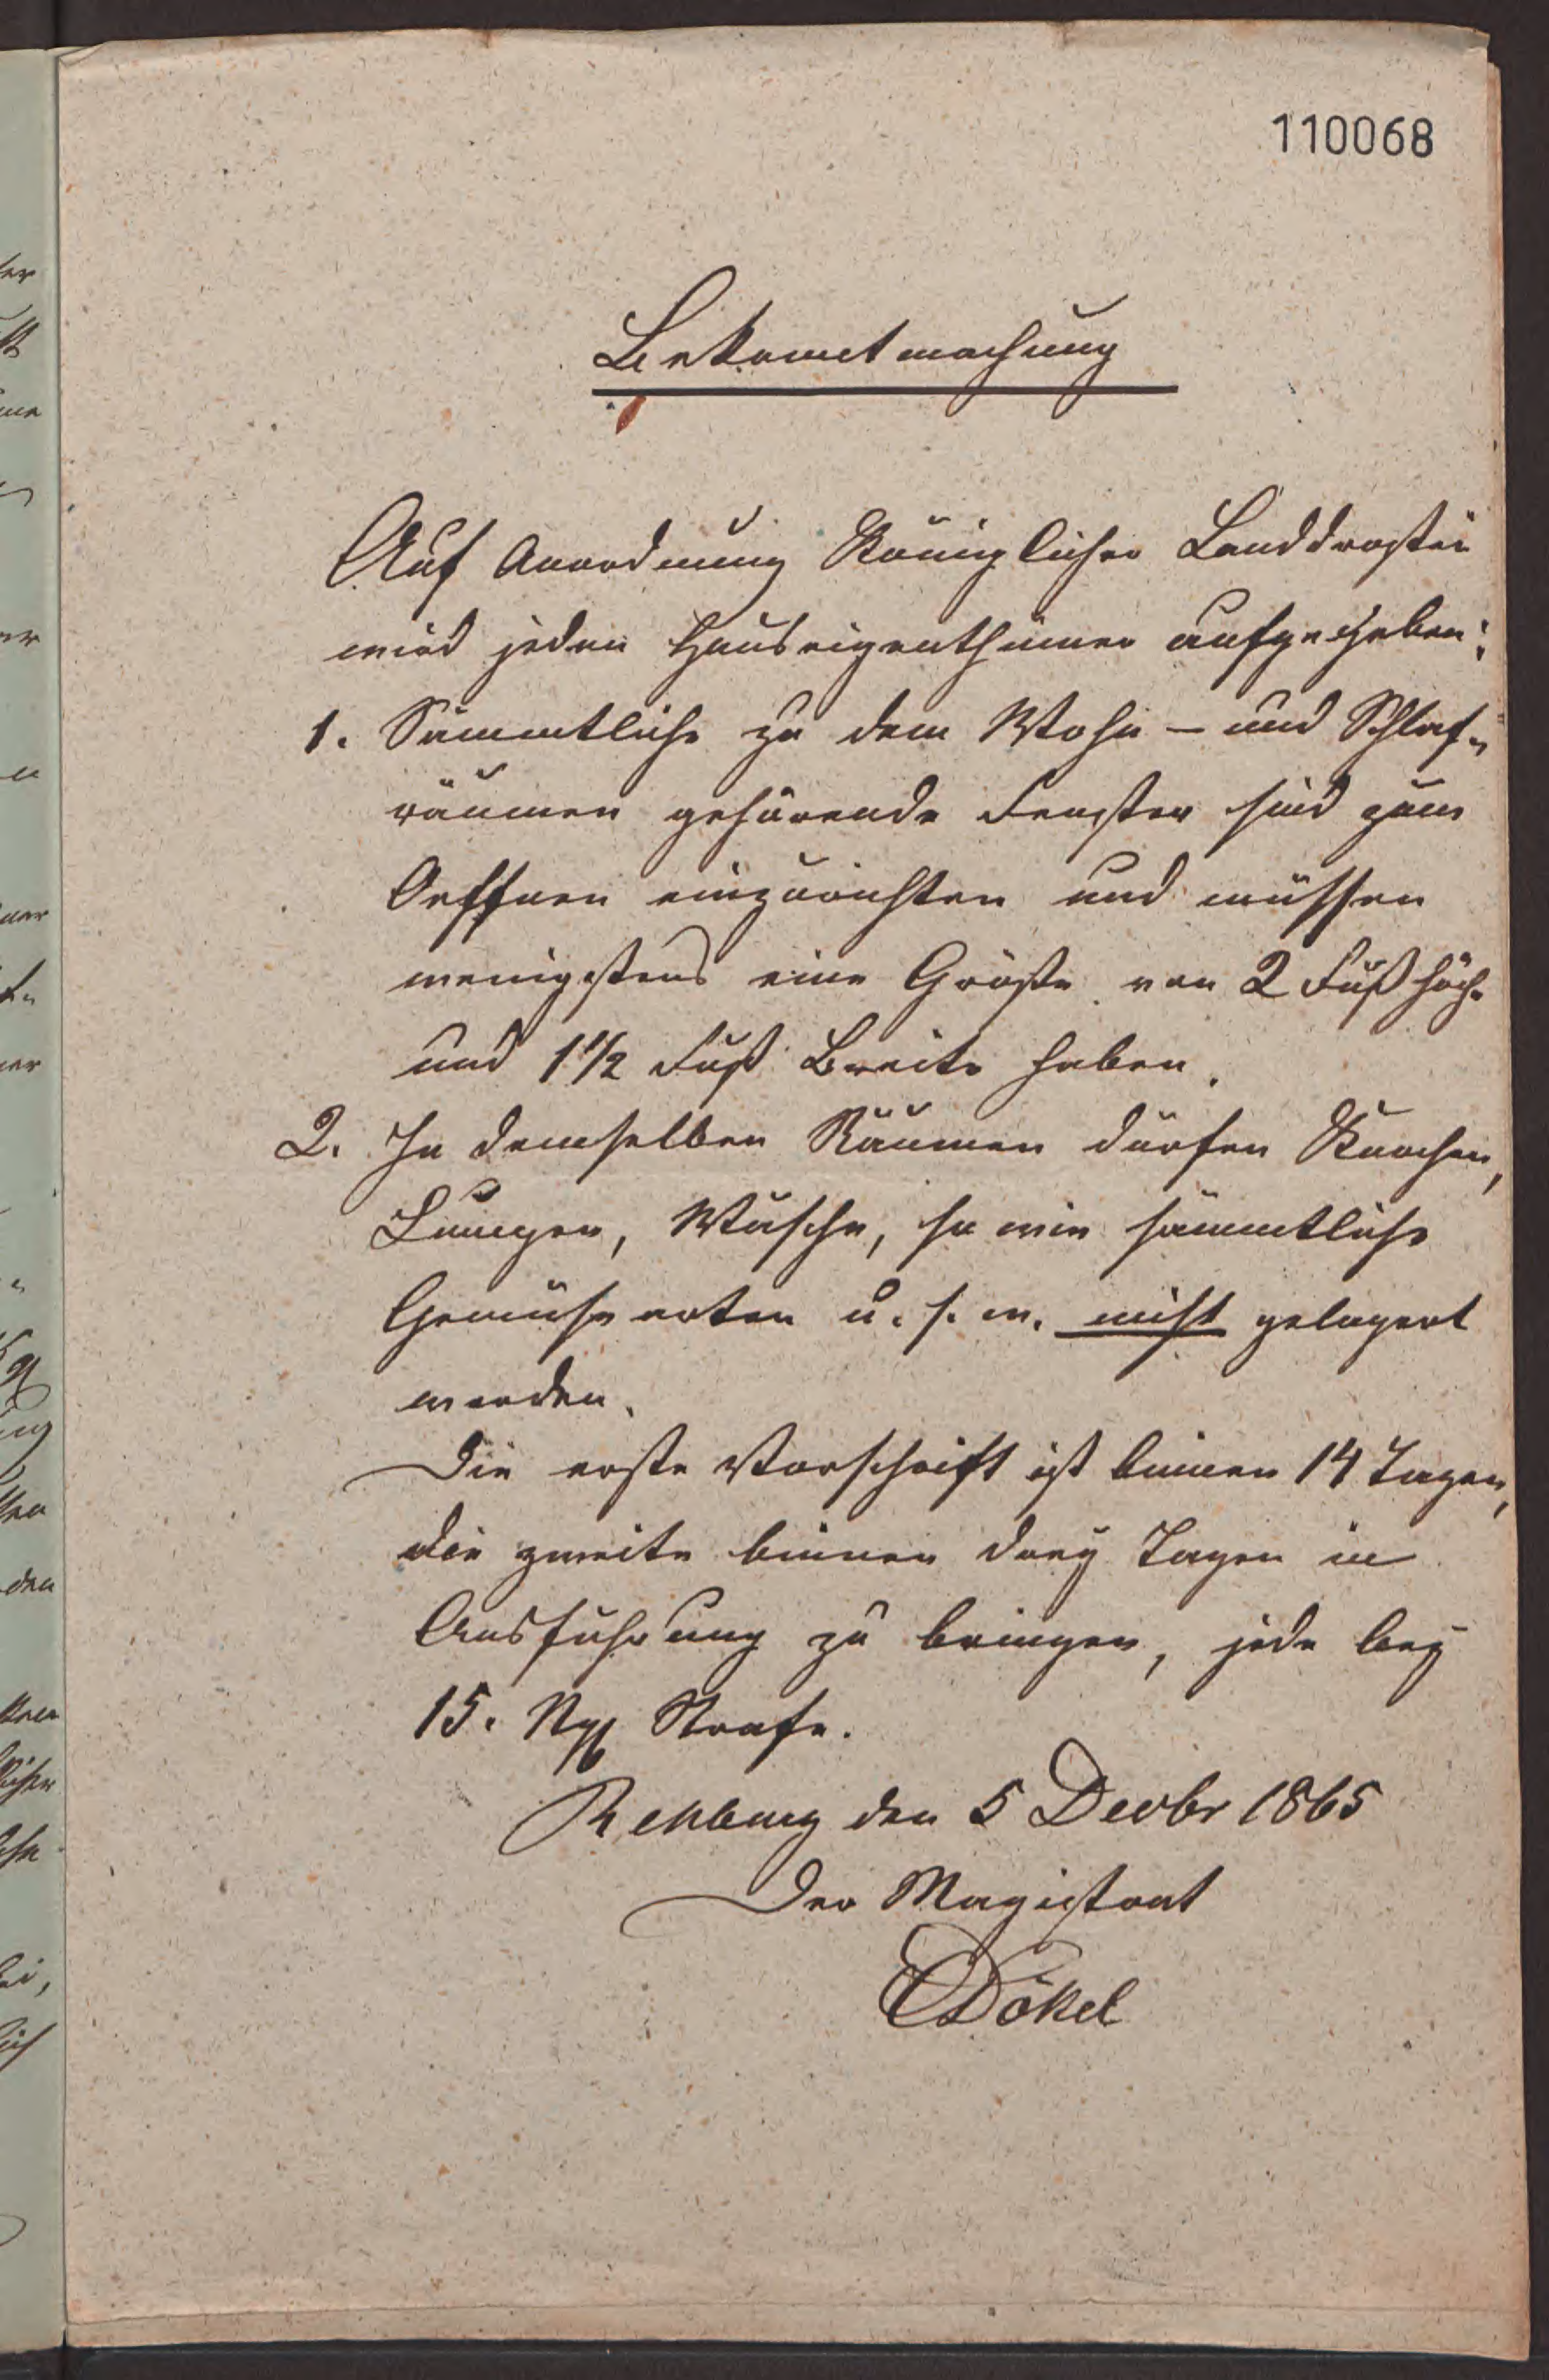 110068
Bekanntmachung
Auf Anordnung Königlicher Landdrostei
wird jeden Hauseigenthümer aufgegeben:
1. Sämmtliche zu dem Wohn- und Schlaf-
räumen gehörende Fenster sind zum
Oeffnen einzurichten und müssen
wenigstens eine Größe von 2 Fuß Höhe
und 1 1/2 Fuß Breite haben.
2. In demselben Räumen dürfen Knochen,
Lumpen, Wäsche, so wie sämmtliche
Gemüsearten u. s. w. nicht gelagert
werden.
Die erste Vorschrift ist binnen 14 Tagen,
die zweite binnen drey Tagen in
Ausführung zu bringen, jede bey
15. Ngr Strafe.
Rehburg den 5 Decbr 1865
Der Magistrat
Dökel